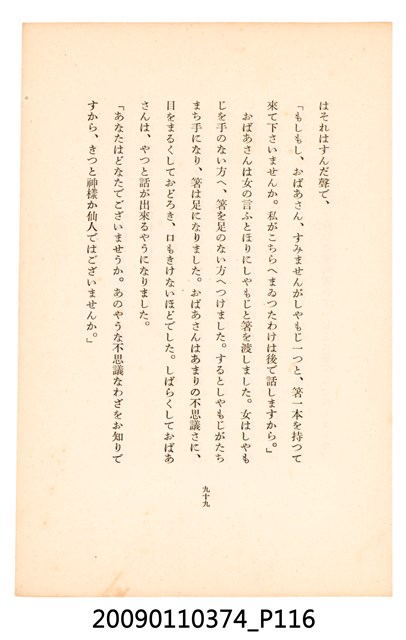 はそれはすんだ聲で、
「もしもし、おばあさん、すみませんがしやもじ一つと、箸一本を持つて
來て下さいませんか。私がこちらへまゐつたわけは後で話しますから。」
おばあさんは女の言ふとほりにしやもじと箸を渡しました。女はしやも
じを手のない方へ、箸を足のない方へつけました。するとしやもじがたち
まち手になり、箸は足になりました。おばあさんはあまりの不思議さに、
目をまるくしておどろき、口もきけないほどでした。しばらくしておばあ
さんは、やつと話が出來るやうになりました。
「あなたはどなたでございませうか。あのやうな不思議なわざをお知りで
すから、きつと神樣か仙人ではございませんか。」
九十九
20090110374_P116